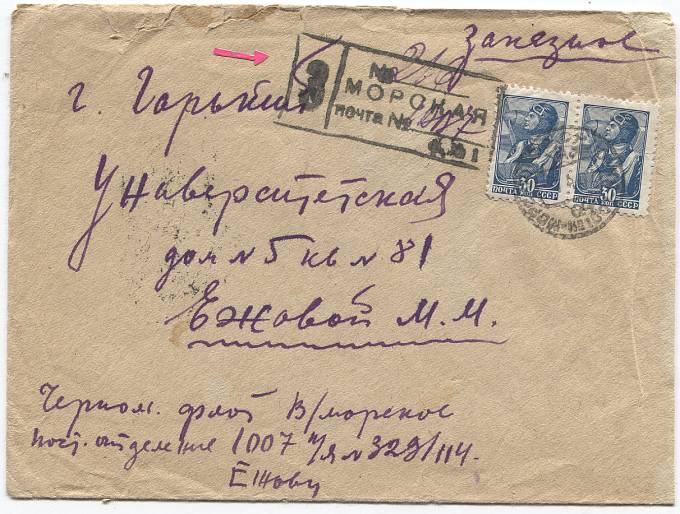 Заказное
З № 246
МОРСКАЯ
ПОЧТА №
г. Горький
Университетская
дом № 5 кв № 81
Ежовой М. М.
30 30
ПОЧТА КОП СССР ПОЧТА КОП СССР
Черном. флот В/морское
пост. отделение 1007 п/я № 329/114.
Ежову